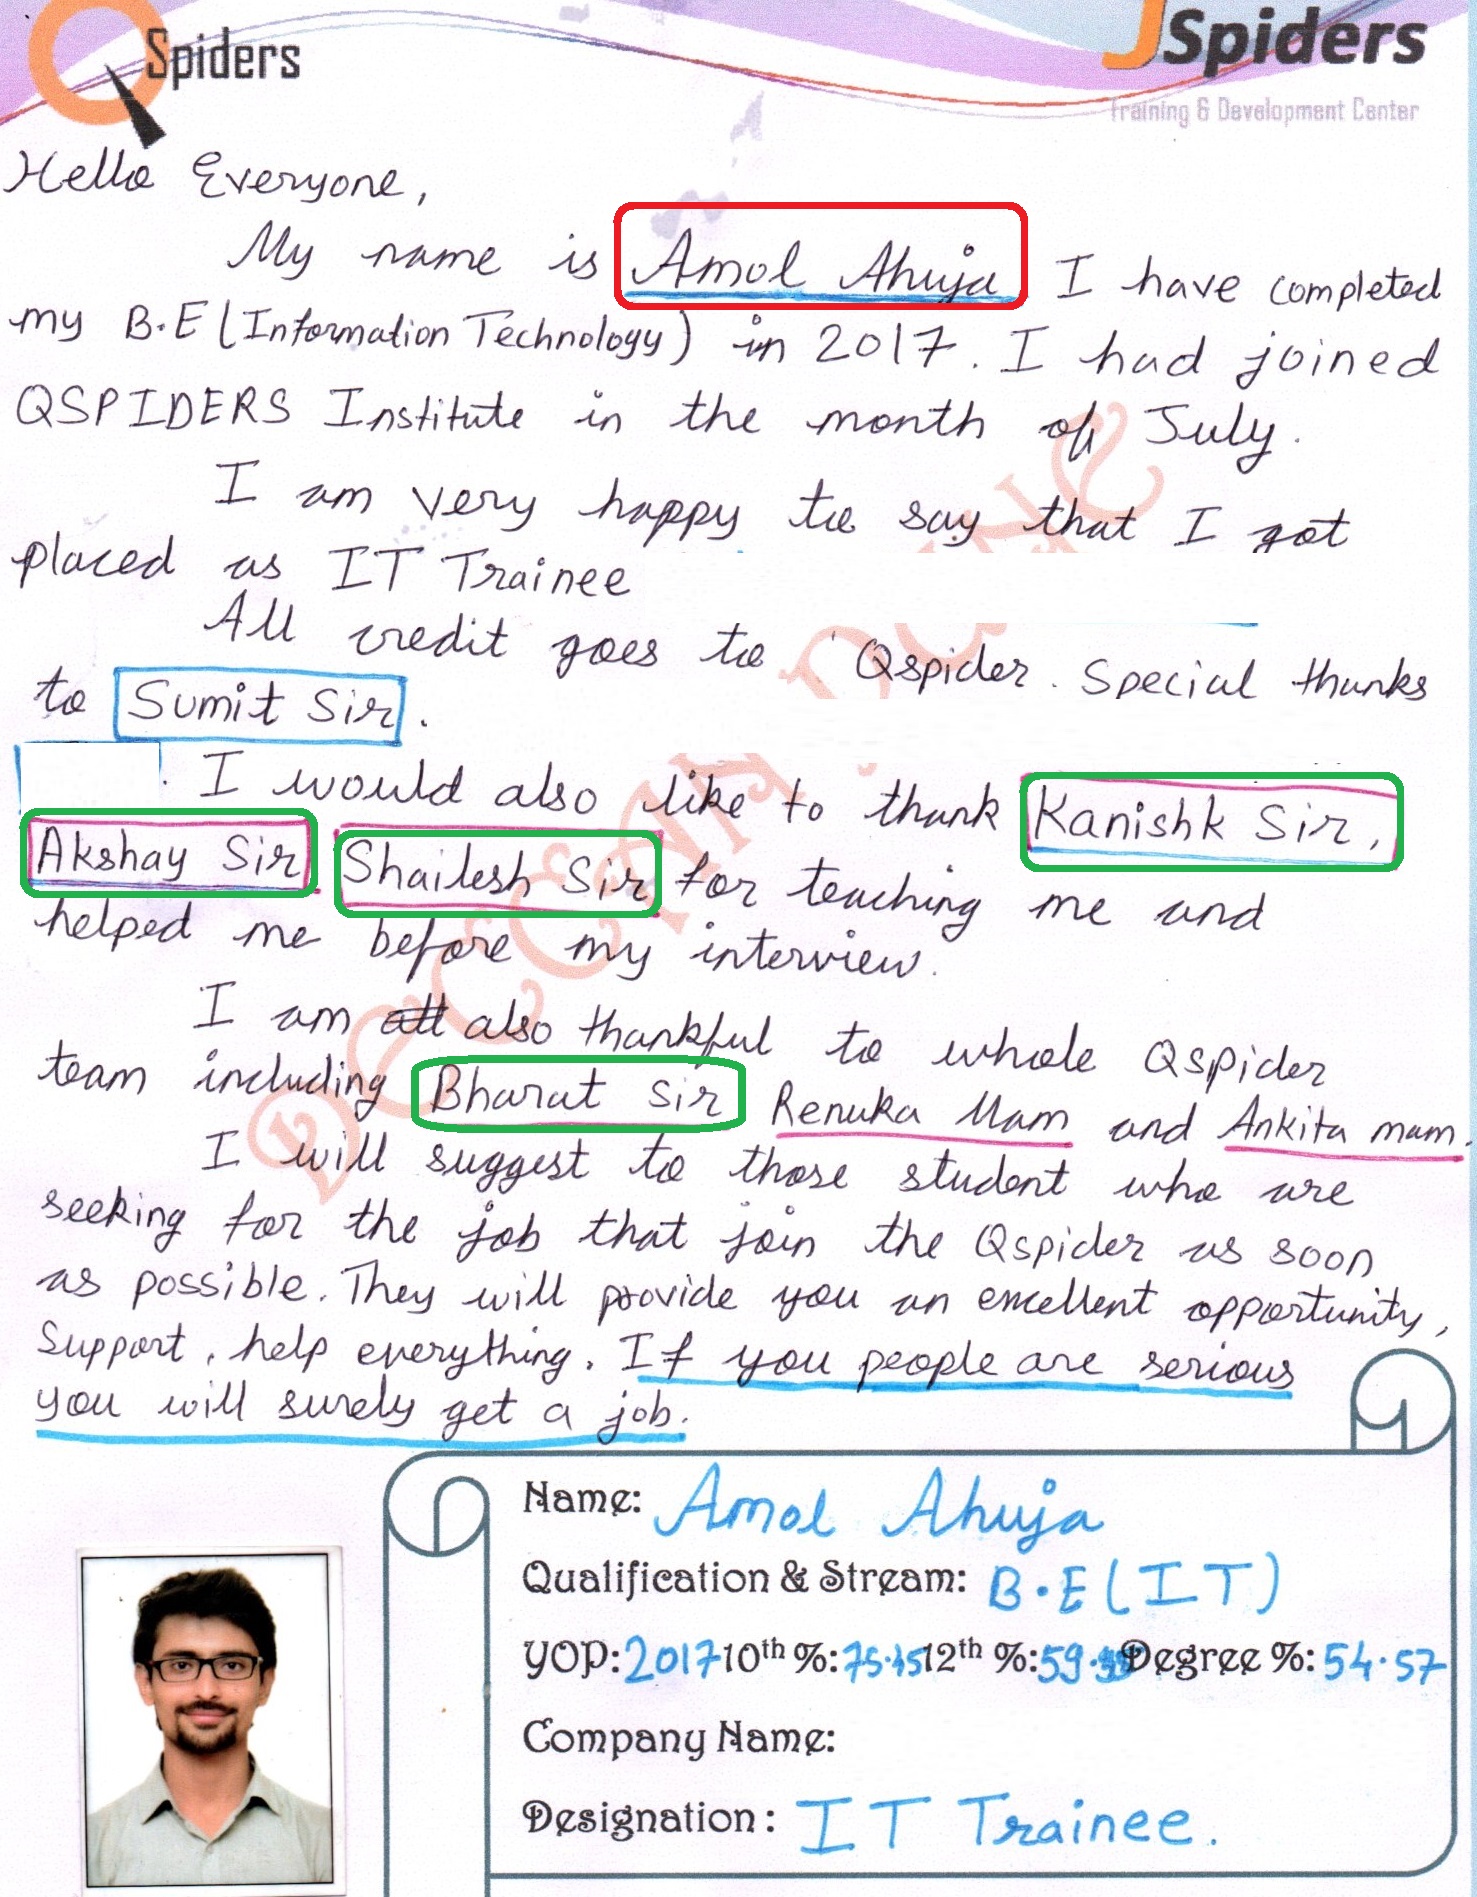 QSpiders
JSpiders
Training & Development Center
Hello Everyone,
My name is Amol Ahuja I have completed
my B.E (Information Technology) in 2017. I had joined
QSPIDERS Institute in the month of July.
I am very happy to say that I got
placed as IT Trainee
All credit goes to Qspider. Special thanks
to Sumit Sir.
I would also like to thank Kanishk Sir,
Akshay Sir, Shailesh Sir for teaching me and
helped me before my interview.
I am also thankful to whole Qspider
team including Bharat Sir Renuka Mam and Ankita mam.
I will suggest to those student who are
seeking for the job that join the Qspider as soon
as possible. They will provide you an excellent opportunity,
Support, help everything. If you people are serious
you will surely get a job.
DECCAN PUNE
Name: Amol Ahuja
Qualification & Stream: B.E (IT)
YOP: 2017 10th %: 75.45 12th %: Degree %: 54.57
Company Name:
Designation: IT Trainee.